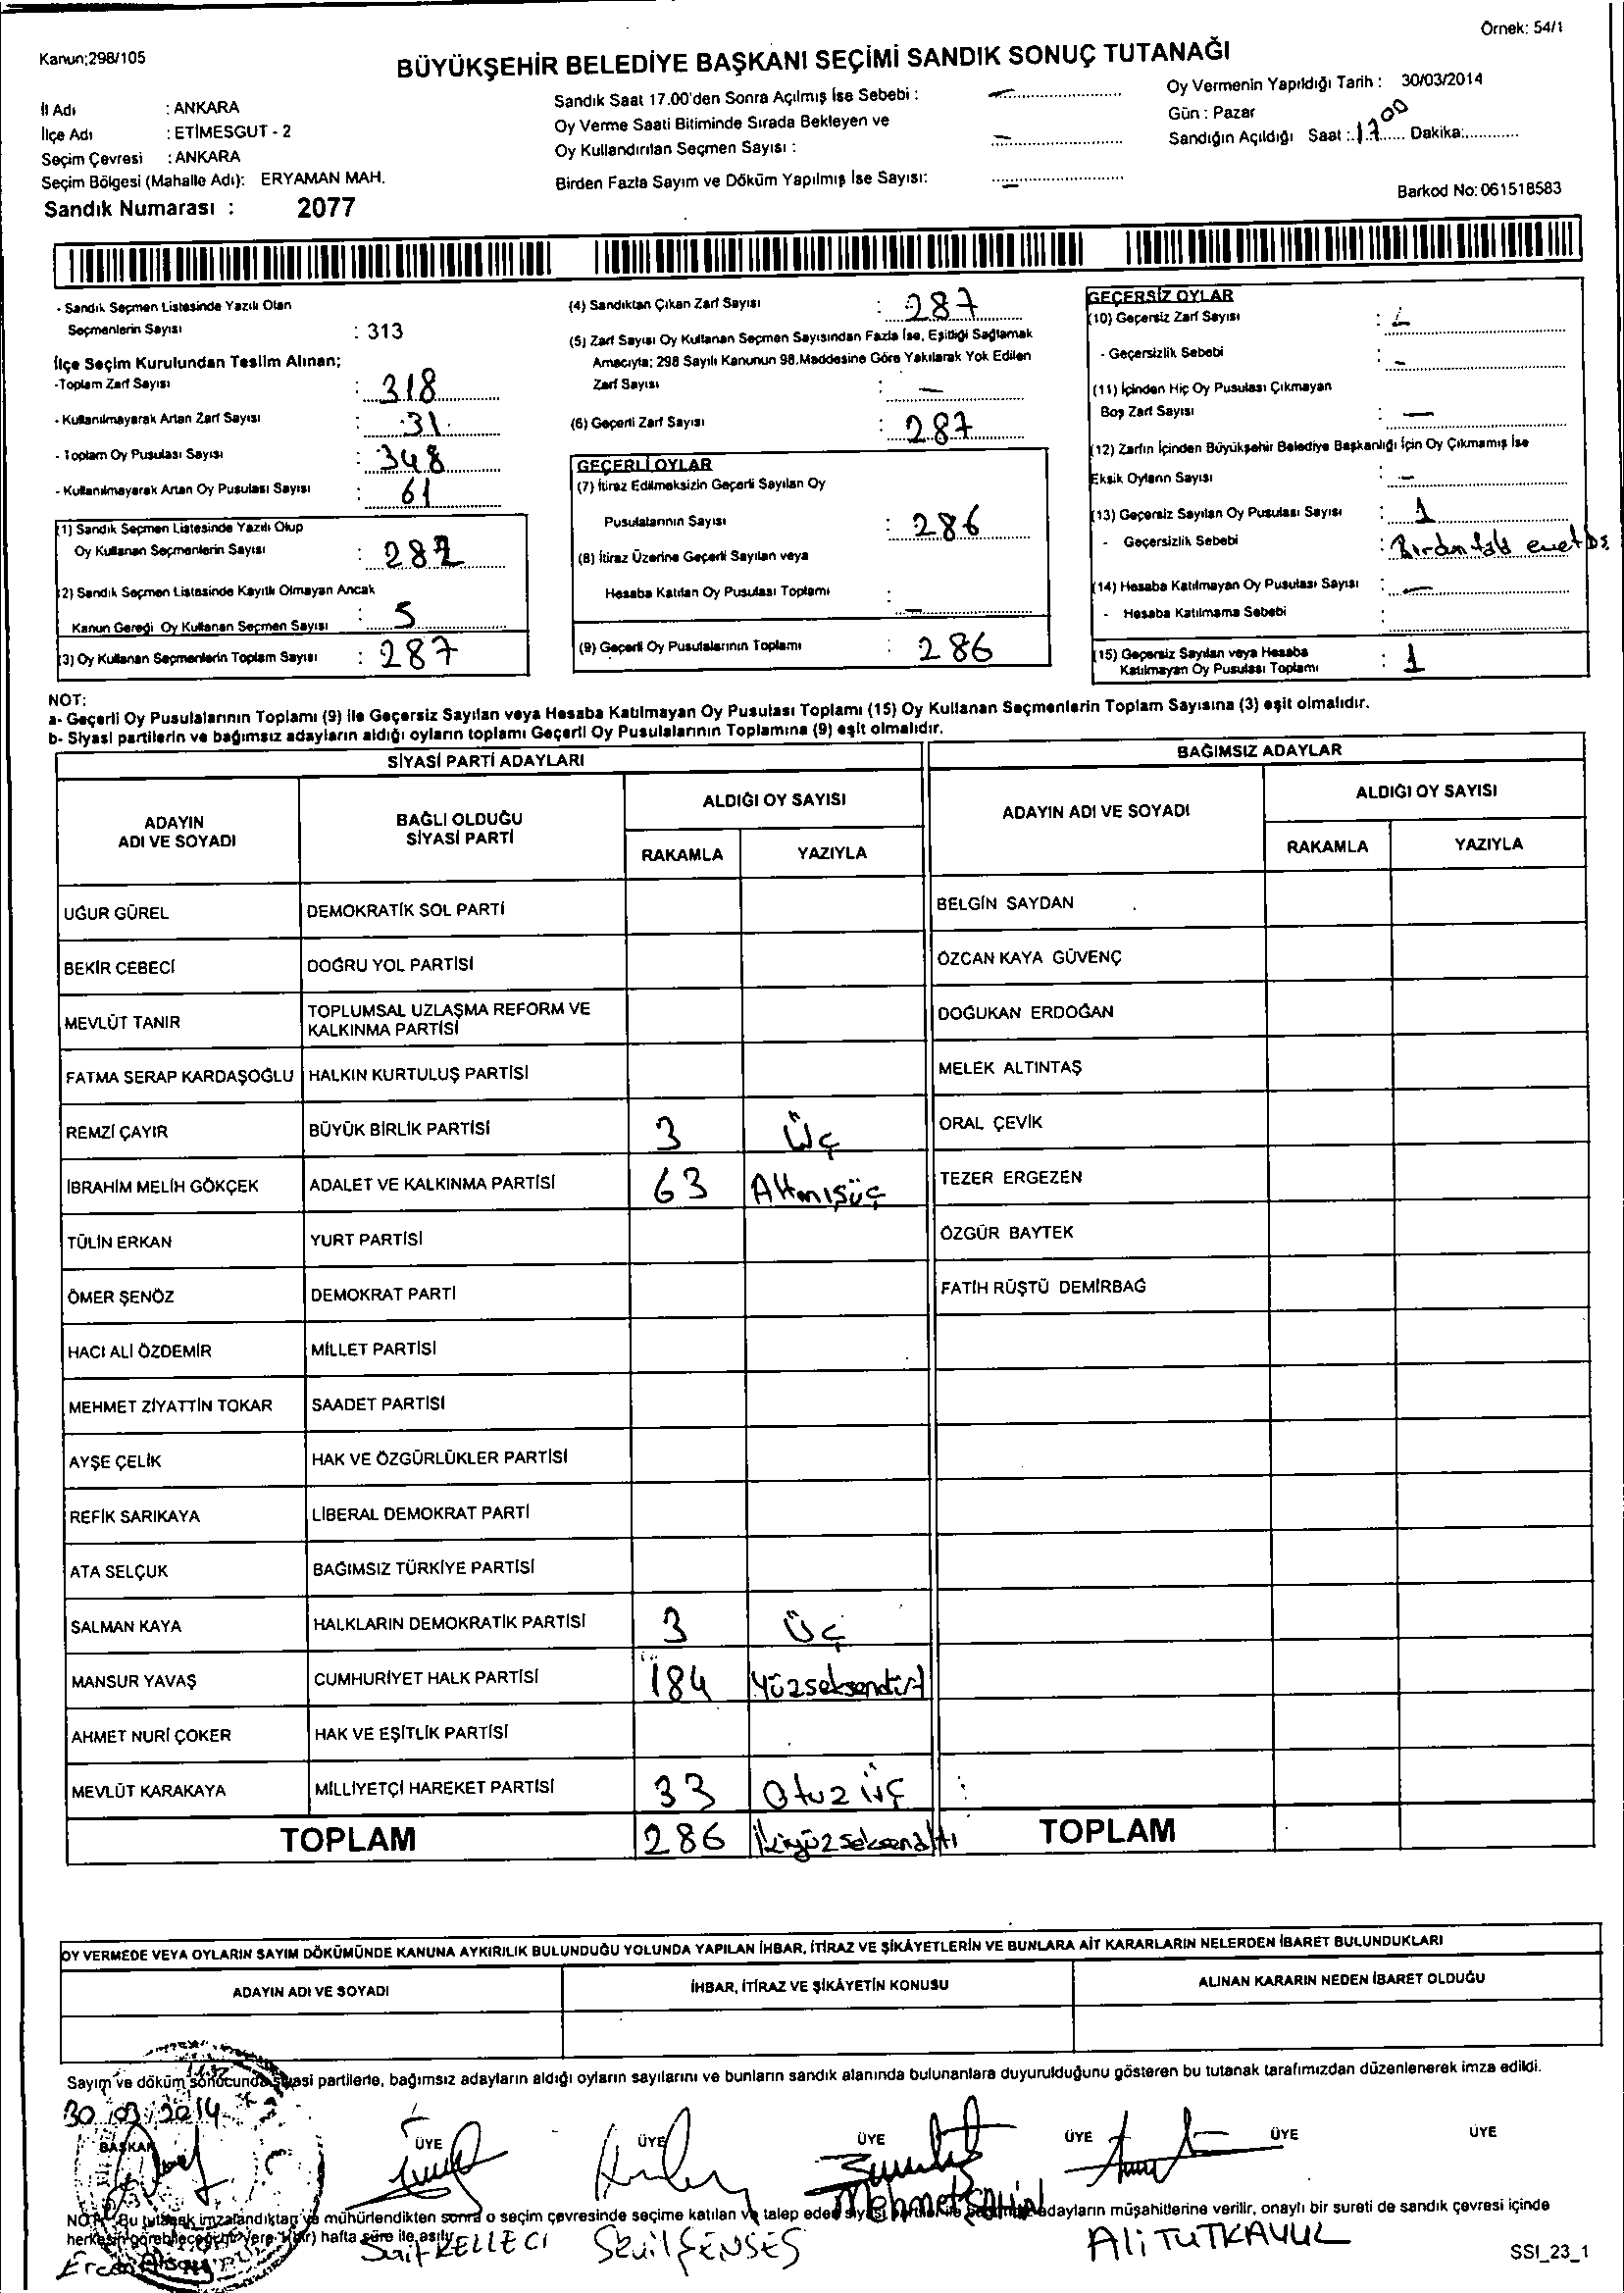 Örnek: 54/1
Kanun;298/105
BÜYÜKŞEHİR BELEDİYE BAŞKANI SEÇİMİ SANDIK SONUÇ TUTANAĞI
İl Adı : ANKARA
İlçe Adı : ETİMESGUT - 2
Seçim Çevresi : ANKARA
Seçim Bölgesi (Mahalle Adı): ERYAMAN MAH.
Sandık Numarası : 2077
Sandık Saat 17.00'den Sonra Açılmış İse Sebebi : —
Oy Verme Saati Bitiminde Sırada Bekleyen ve
Oy Kullandırılan Seçmen Sayısı : —
Birden Fazla Sayım ve Döküm Yapılmış İse Sayısı: —
Oy Vermenin Yapıldığı Tarih : 30/03/2014
Gün : Pazar
Sandığın Açıldığı Saat : 1700 Dakika:............
Barkod No: 061518583
- Sandık Seçmen Listesinde Yazılı Olan
Seçmenlerin Sayısı : 313
İlçe Seçim Kurulundan Teslim Alınan;
-Toplam Zarf Sayısı : 318
- Kullanılmayarak Artan Zarf Sayısı : 31
- Toplam Oy Pusulası Sayısı : 348
- Kullanılmayarak Artan Oy Pusulası Sayısı : 61
(1) Sandık Seçmen Listesinde Yazılı Olup
Oy Kullanan Seçmenlerin Sayısı : 282
(2) Sandık Seçmen Listesinde Kayıtlı Olmayan Ancak
Kanun Gereği Oy Kullanan Seçmen Sayısı : 5
(3) Oy Kullanan Seçmenlerin Toplam Sayısı : 287
(4) Sandıktan Çıkan Zarf Sayısı : 287
(5) Zarf Sayısı Oy Kullanan Seçmen Sayısından Fazla İse, Eşitliği Sağlamak
Amacıyla; 298 Sayılı Kanunun 98.Maddesine Göre Yakılarak Yok Edilen
Zarf Sayısı : —
(6) Geçerli Zarf Sayısı : 287
GEÇERLİ OYLAR
(7) İtiraz Edilmeksizin Geçerli Sayılan Oy
Pusulalarının Sayısı : 286
(8) İtiraz Üzerine Geçerli Sayılan veya
Hesaba Katılan Oy Pusulası Toplamı : —
(9) Geçerli Oy Pusulalarının Toplamı : 286
GEÇERSİZ OYLAR
(10) Geçersiz Zarf Sayısı : —
- Geçersizlik Sebebi : —
(11) İçinden Hiç Oy Pusulası Çıkmayan
Boş Zarf Sayısı : —
(12) Zarfın İçinden Büyükşehir Belediye Başkanlığı İçin Oy Çıkmamış İse
Eksik Oyların Sayısı : —
(13) Geçersiz Sayılan Oy Pusulası Sayısı : 1
- Geçersizlik Sebebi : Birden evet
(14) Hesaba Katılmayan Oy Pusulası Sayısı : —
- Hesaba Katılmama Sebebi :
(15) Geçersiz Sayılan veya Hesaba
Katılmayan Oy Pusulası Toplamı : 1
NOT:
a- Geçerli Oy Pusulalarının Toplamı (9) ile Geçersiz Sayılan veya Hesaba Katılmayan Oy Pusulası Toplamı (15) Oy Kullanan Seçmenlerin Toplam Sayısına (3) eşit olmalıdır.
b- Siyasi partilerin ve bağımsız adayların aldığı oyların toplamı Geçerli Oy Pusulalarının Toplamına (9) eşit olmalıdır.
SİYASİ PARTİ ADAYLARI
ADAYIN
ADI VE SOYADI
BAĞLI OLDUĞU
SİYASİ PARTİ
ALDIĞI OY SAYISI
RAKAMLA YAZIYLA
UĞUR GÜREL DEMOKRATİK SOL PARTİ
BEKİR CEBECİ DOĞRU YOL PARTİSİ
MEVLÜT TANIR TOPLUMSAL UZLAŞMA REFORM VE
KALKINMA PARTİSİ
FATMA SERAP KARDAŞOĞLU HALKIN KURTULUŞ PARTİSİ
REMZİ ÇAYIR BÜYÜK BİRLİK PARTİSİ 3 Üç
İBRAHİM MELİH GÖKÇEK ADALET VE KALKINMA PARTİSİ 63 Altmışüç
TÜLİN ERKAN YURT PARTİSİ
ÖMER ŞENÖZ DEMOKRAT PARTİ
HACI ALİ ÖZDEMİR MİLLET PARTİSİ
MEHMET ZİYATTİN TOKAR SAADET PARTİSİ
AYŞE ÇELİK HAK VE ÖZGÜRLÜKLER PARTİSİ
REFİK SARIKAYA LİBERAL DEMOKRAT PARTİ
ATA SELÇUK BAĞIMSIZ TÜRKİYE PARTİSİ
SALMAN KAYA HALKLARIN DEMOKRATİK PARTİSİ 3 Üç
MANSUR YAVAŞ CUMHURİYET HALK PARTİSİ 184 Yüzseksendört
AHMET NURİ ÇOKER HAK VE EŞİTLİK PARTİSİ
MEVLÜT KARAKAYA MİLLİYETÇİ HAREKET PARTİSİ 33 Otuz üç
TOPLAM 286 İkiyüzseksenaltı
BAĞIMSIZ ADAYLAR
ADAYIN ADI VE SOYADI
ALDIĞI OY SAYISI
RAKAMLA YAZIYLA
BELGİN SAYDAN
ÖZCAN KAYA GÜVENÇ
DOĞUKAN ERDOĞAN
MELEK ALTINTAŞ
ORAL ÇEVİK
TEZER ERGEZEN
ÖZGÜR BAYTEK
FATİH RÜŞTÜ DEMİRBAĞ
TOPLAM
OY VERMEDE VEYA OYLARIN SAYIM DÖKÜMÜNDE KANUNA AYKIRILIK BULUNDUĞU YOLUNDA YAPILAN İHBAR, İTİRAZ VE ŞİKÂYETLERİN VE BUNLARA AİT KARARLARIN NELERDEN İBARET BULUNDUKLARI
ADAYIN ADI VE SOYADI İHBAR, İTİRAZ VE ŞİKÂYETİN KONUSU ALINAN KARARIN NEDEN İBARET OLDUĞU
Sayım ve döküm sonucunda siyasi partilerle, bağımsız adayların aldığı oyların sayılarını ve bunların sandık alanında bulunanlara duyurulduğunu gösteren bu tutanak tarafımızdan düzenlenerek imza edildi.
30/03/2014
BAŞKAN ÜYE ÜYE ÜYE ÜYE ÜYE ÜYE
Mehmet ŞAHİN
NOT: Bu tutanak imzalandıktan ve mühürlendikten sonra o seçim çevresinde seçime katılan ve talep eden siyasi partiler ile bağımsız adayların müşahitlerine verilir, onaylı bir sureti de sandık çevresi içinde
herkesin görebileceği bir yere 1 (bir) hafta süre ile asılır.
Sait KELLECİ Sevil ŞENSES Ali TUTKAVUL
SSI_23_1